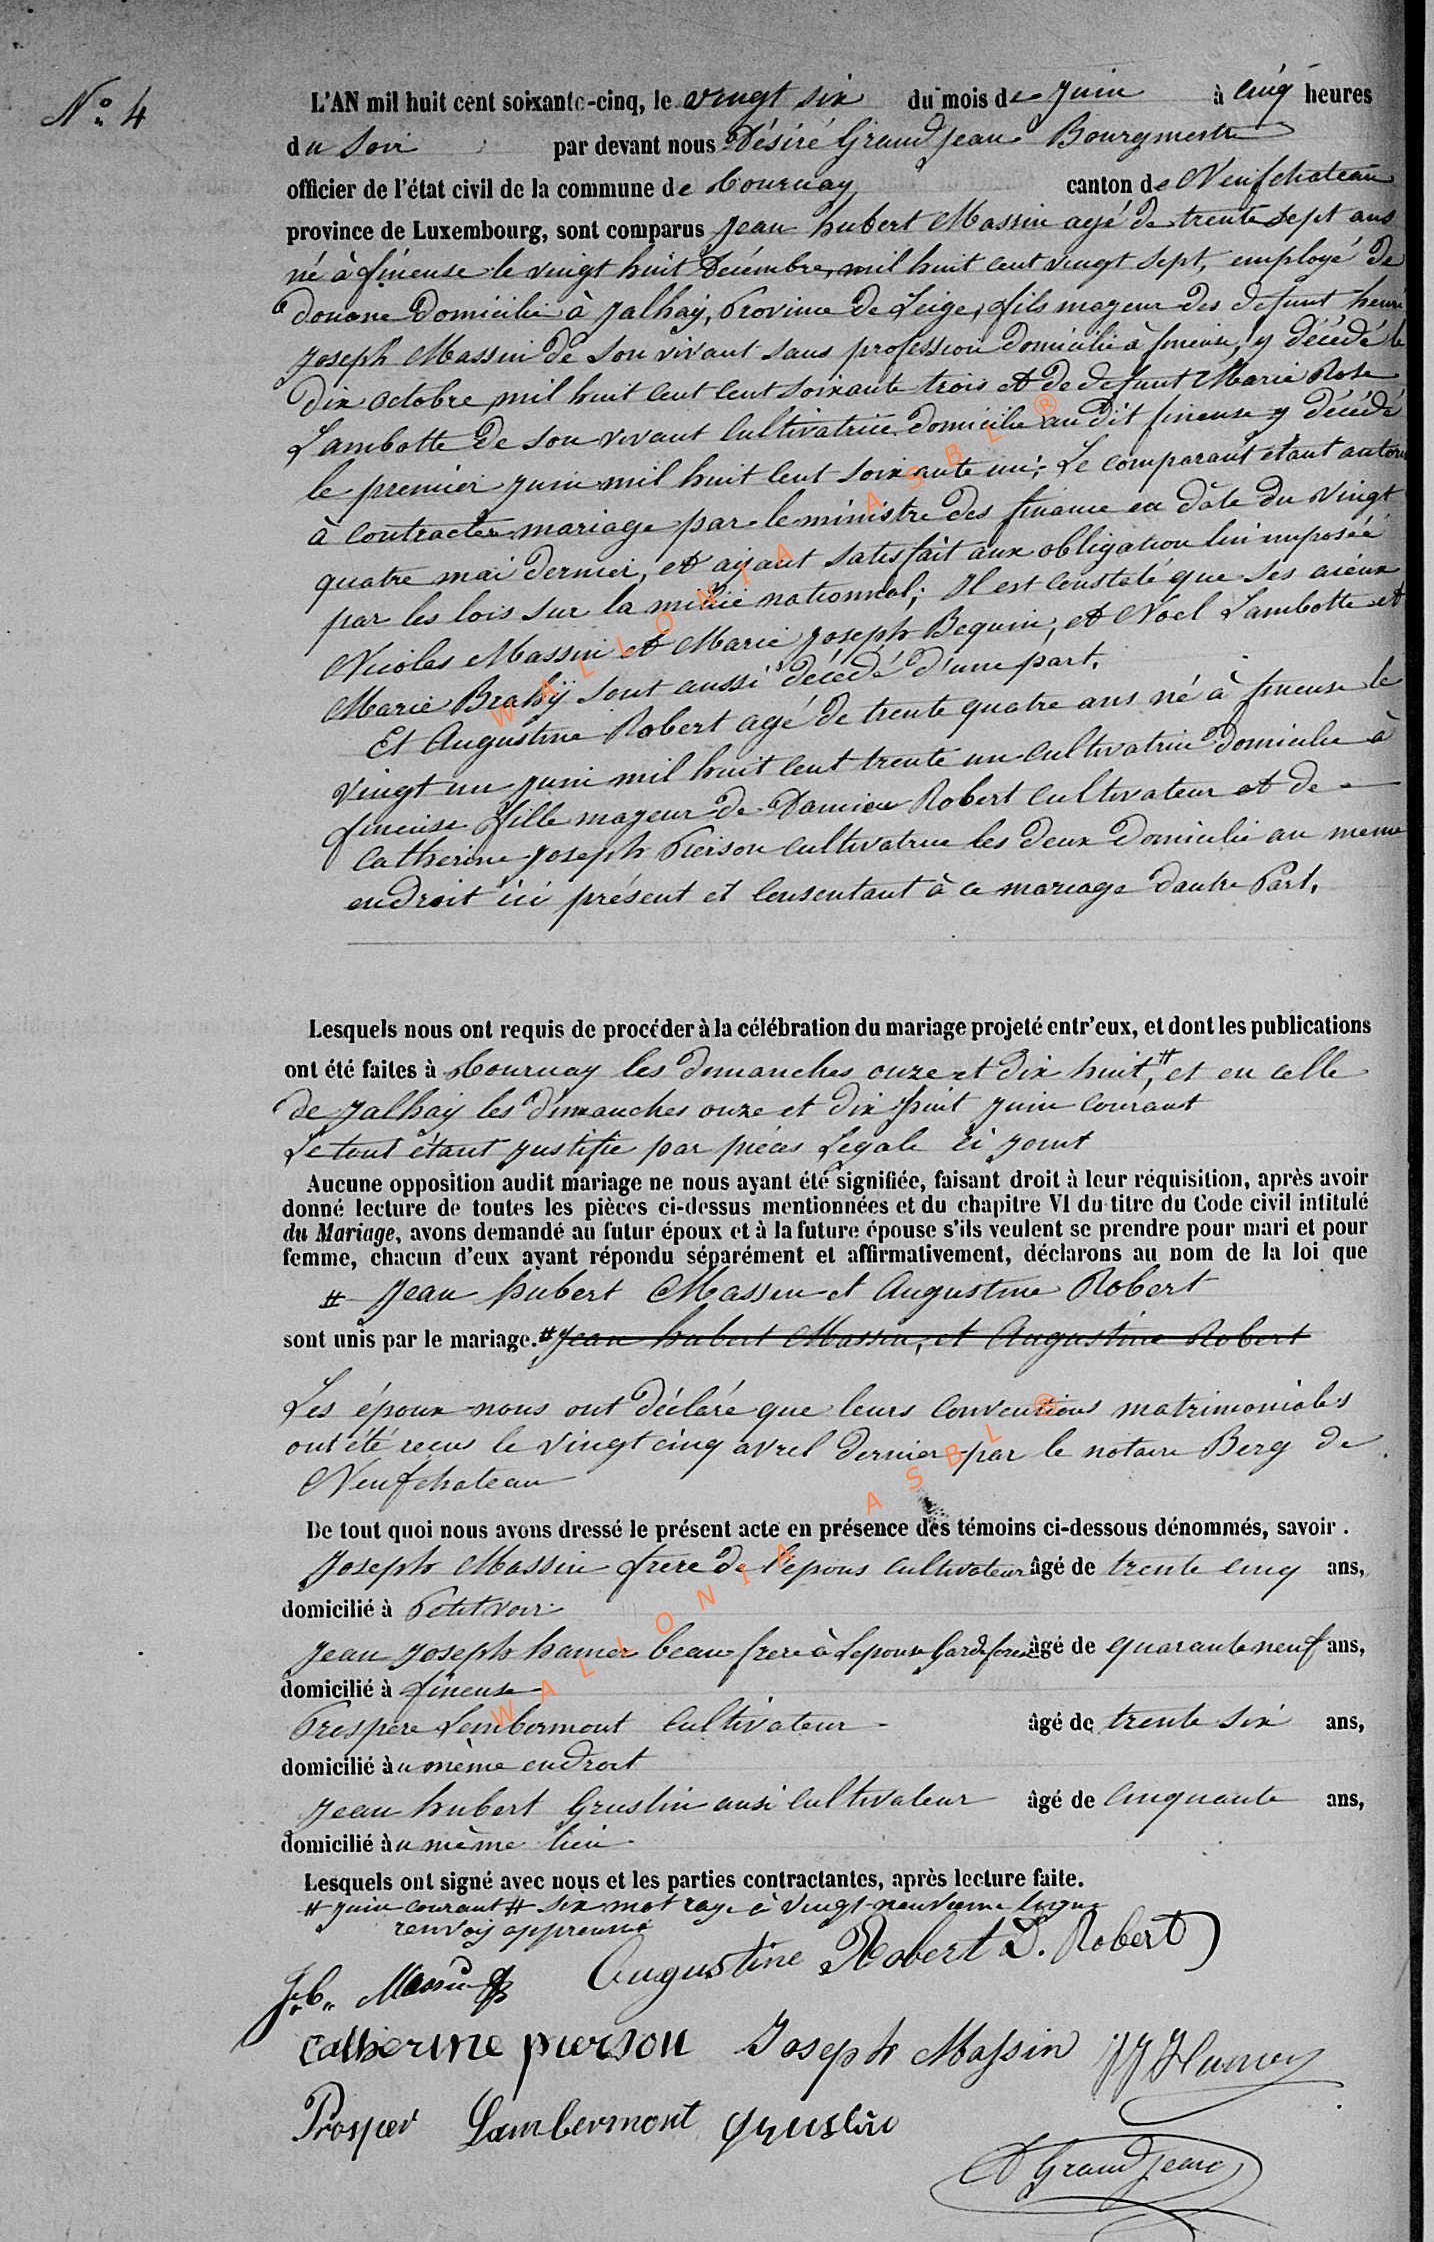 N° 4
L'AN mil huit cent soixante-cinq, le vingt six du mois de Juin à cinq heures
du Soir par devant nous Désiré Grandjean Bourgmestre
officier de l'état civil de la commune de Tournay canton de Neufchateau
province de Luxembourg, sont comparus Jean hubert Massin agé de trente sept ans
né à fineuse le vingt huit Décembre, mil huit cent vingt sept, employé de
douane domicilié à Jalhay, Province de Leige, fils mageur des defunt henri
Joseph Massin de son vivant sans profession domicilié à fineuse, y décédé le
dix octobre mil huit cent cent soixante trois et de defunt Marie Rose
Lambotte de son vivant Cultivatrice domicilie au dit fineuse y décédé
le premier juin mil huit cent soixante un; Le comparant étant autori
à contracter mariage par le ministre des finance en date du vingt
quatre mai dernier, et ayant satisfait aux obligation lui imposée
par les lois sur la milice national; Il est constaté que ses aieux
Nicolas Massin et Marie Joseph Bequin, et Noel Lambotte et
Marie Brahÿ sont aussi décédé d'une part.
Et Augustine Robert agé de trente quatre ans né à fineuse le
vingt un juin mil huit cent trente un cultivatrice domicilie à
fineuse fille mageur de Damien Robert cultivateur et de
Catherine Joseph Pierson cultivatrice les deux domicilié au meme
endroit ici présent et consentant à ce mariage dautre Part.
Lesquels nous ont requis de procéder à la célébration du mariage projeté entr'eux, et dont les publications
ont été faites à Tournay les dimanches onze et dix huit, # et en celle
de Jalhay les dimanches onze et dix huit juin courant
Le tout étant justifie par pièces Legale ci joint
Aucune opposition audit mariage ne nous ayant été signifiée, faisant droit à leur réquisition, après avoir
donné lecture de toutes les pièces ci-dessus mentionnées et du chapitre VI du titre du Code civil intitulé
du Mariage, avons demandé au futur époux et à la future épouse s'ils veulent se prendre pour mari et pour
femme, chacun d'eux ayant répondu séparément et affirmativement, déclarons au nom de la loi que
# Jean hubert Massin et Augustine Robert
sont unis par le mariage. # Jean hubert Massin, et Augustine Robert
Les époux nous ont déclaré que leurs conventions matrimoniales
ont été recus le vingt cinq avrel dernier par le notaire Berg de
Neufchateau
De tout quoi nous avons dressé le présent acte en présence des témoins ci-dessous dénommés, savoir.
Joseph Massin frere de l'epous cultivateur âgé de trente cinq ans,
domicilié à Petitvoir
Jean Joseph hamer beau frere à Lepouse Garde forest âgé de quarante neuf ans,
domicilié à fineuse
Prospere Lambermont cultivateur âgé de trente six ans,
domicilié au même endroit
Jean hubert Gruslin ausi cultivateur âgé de cinquante ans,
domicilié au même lieu
Lesquels ont signé avec nous et les parties contractantes, après lecture faite.
# juin courant # six mot raye à vingt-neuvieme ligne
renvoy approuvé
J. h. Massin Augustine Robert D. Robert
Catherine pierson Joseph Massin JJ Hamer
Prosper Lambermont Gruslin
D Grandjean
WALLONIA ASBL ®
WALLONIA ASBL ®